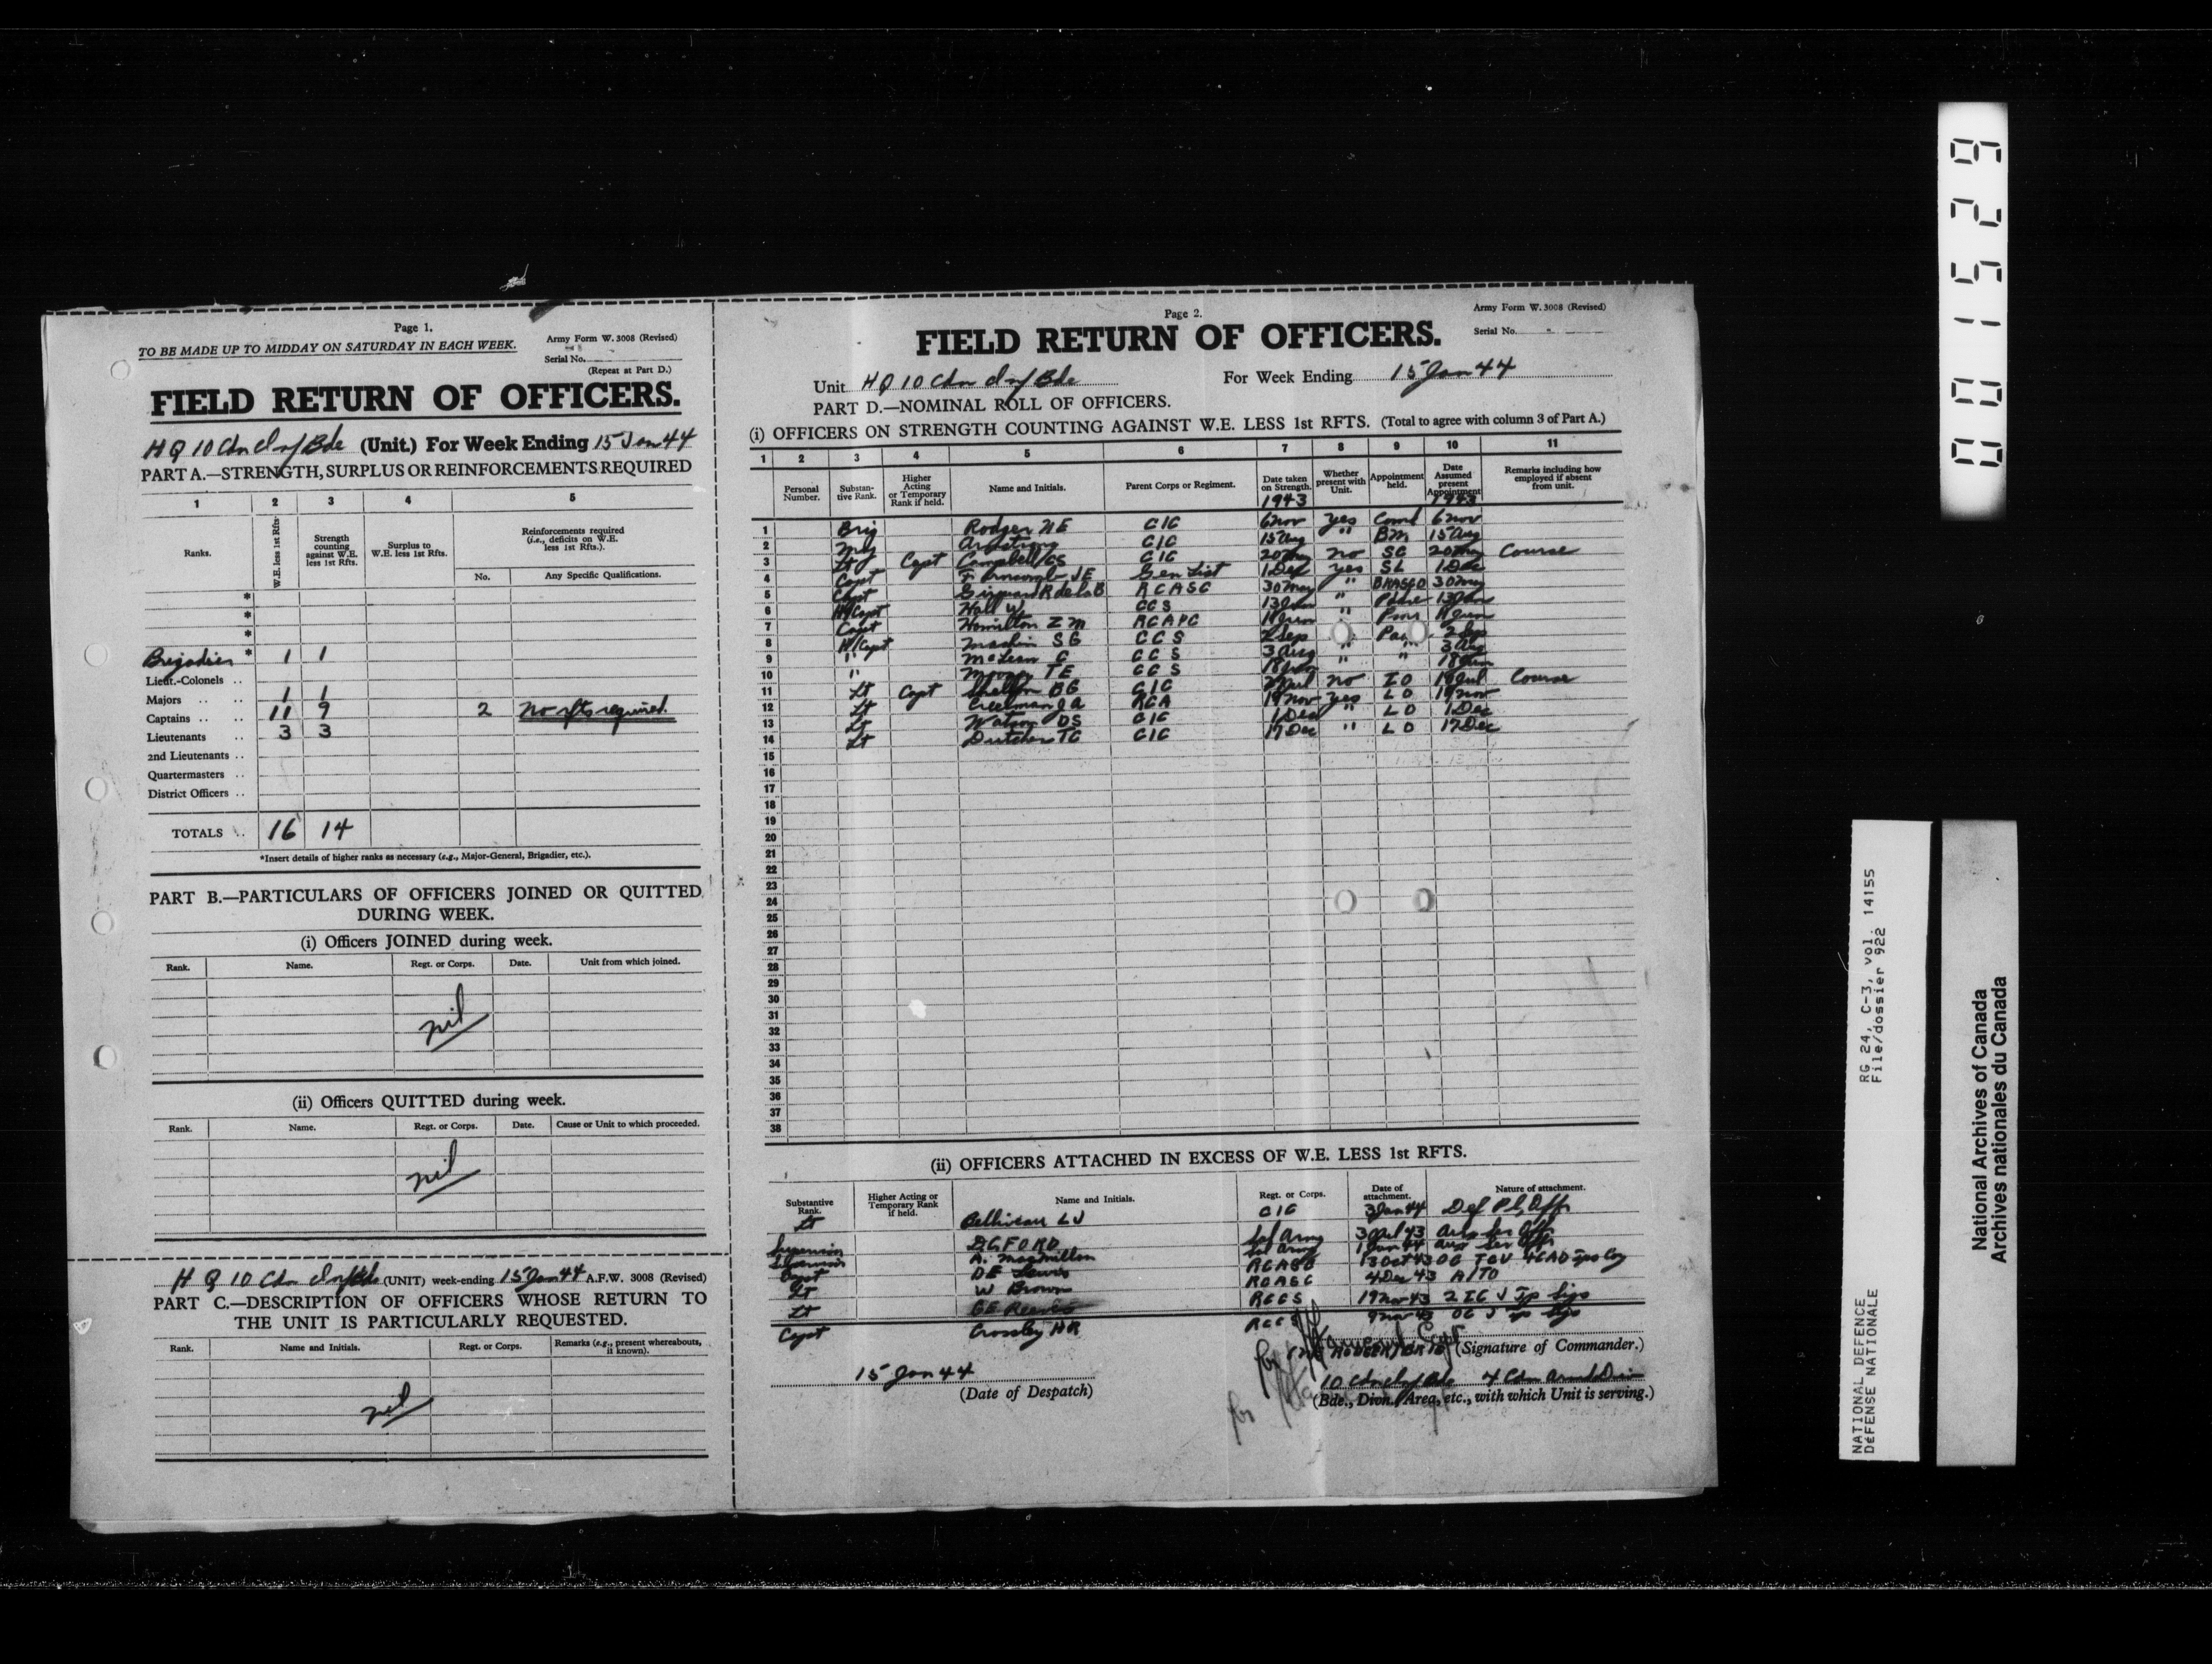 Page 1.
TO BE MADE UP TO MIDDAY ON SATURDAY IN EACH WEEK.
Army Form W. 3008 (Revised)
Serial No.
(Repeat at Part D.)
FIELD RETURN OF OFFICERS.
H Q 10 Cdn Inf Bde (Unit.) For Week Ending 15 Jan 44
PART A.—STRENGTH, SURPLUS OR REINFORCEMENTS REQUIRED
1 2 3 4 5
Ranks. W.E. less 1st Rfts. Strength counting against W.E. less 1st Rfts. Surplus to W.E. less 1st Rfts. Reinforcements required (i.e., deficits on W.E. less 1st Rfts.).
No. Any Specific Qualifications.
*
*
*
Brigadier * 1 1
Lieut.-Colonels ..
Majors .. .. 1 1
Captains .. .. 11 9 2 No rfts required.
Lieutenants .. 3 3
2nd Lieutenants ..
Quartermasters ..
District Officers ..
TOTALS .. 16 14
*Insert details of higher ranks as necessary (e.g., Major-General, Brigadier, etc.).
PART B.—PARTICULARS OF OFFICERS JOINED OR QUITTED DURING WEEK.
(i) Officers JOINED during week.
Rank. Name. Regt. or Corps. Date. Unit from which joined.
nil
(ii) Officers QUITTED during week.
Rank. Name. Regt. or Corps. Date. Cause or Unit to which proceeded.
nil
H Q 10 Cdn Inf Bde (UNIT) week-ending 15 Jan 44 A.F.W. 3008 (Revised)
PART C.—DESCRIPTION OF OFFICERS WHOSE RETURN TO
THE UNIT IS PARTICULARLY REQUESTED.
Rank. Name and Initials. Regt. or Corps. Remarks (e.g., present whereabouts, if known).
nil
Page 2.
Army Form W. 3008 (Revised)
Serial No.
FIELD RETURN OF OFFICERS.
Unit H Q 10 Cdn Inf Bde For Week Ending 15 Jan 44
PART D.—NOMINAL ROLL OF OFFICERS.
(i) OFFICERS ON STRENGTH COUNTING AGAINST W.E. LESS 1st RFTS. (Total to agree with column 3 of Part A.)
1 2 3 4 5 6 7 8 9 10 11
Personal Number. Substantive Rank. Higher Acting or Temporary Rank if held. Name and Initials. Parent Corps or Regiment. Date taken on Strength. Whether present with Unit. Appointment held. Date Assumed present Appointment Remarks including how employed if absent from unit.
1943 1943
1 Brig Rodger NE CIC 6 Nov yes Comd 6 Nov
2 Maj Armstrong CIC 15 Aug " BM 15 Aug
3 Lt Capt Campbell CIC 20 May no SC 20 May Course
4 Capt JE Gen List 1 Dec yes SL 1 Dec
5 Capt R de la B RCASC 30 May " BRASCO 30 May
6 H/Capt Hall W CCS 13 Jun " Padre 13 Jun
7 Capt Hamilton I M RCAPC "
8 H/Capt SG CCS 2 Sep 2 Sep
9 " McLean G CCS 3 Aug " " 3 Aug
10 " TE CCS 18 Jun " " 18 Jun
11 Lt Capt Shelton BG CIC no IO Course
12 Lt Creelman JA RCA 19 Nov yes LO 19 Nov
13 Lt Watson DS CIC 1 Dec " LO 1 Dec
14 Lt Dutcher TC CIC 17 Dec " LO 17 Dec
15
16
17
18
19
20
21
22
23
24
25
26
27
28
29
30
31
32
33
34
35
36
37
38
(ii) OFFICERS ATTACHED IN EXCESS OF W.E. LESS 1st RFTS.
Substantive Rank. Higher Acting or Temporary Rank if held. Name and Initials. Regt. or Corps. Date of attachment. Nature of attachment.
Lt Belliveau LJ CIC 3 Jan 44 Def Pl Offr
Supervisor D.G. FORD Sal Army 43 Aux Ser Offr
Supervisor A. MacMillan Sal Army 1 Jan 44 Aux Ser Offr
Capt DE Lewis RCASC 13 Oct 43 4CAD Tps Coy
Lt W Brown RCASC 4 Dec 43 A/TO
Lt GE Reeves RCCS 19 Nov 43 2 IC J Tp Sigs
Capt Crossley HR RCCS 9 Nov 43 OC J Tp Sigs
15 Jan 44
(Date of Despatch)
(Signature of Commander.)
10 Cdn Inf Bde 4 Cdn Armd Div
(Bde., Divn., Area, etc., with which Unit is serving.)
001529
RG 24, C-3, vol. 14155
File/dossier 922
NATIONAL DEFENCE
DÉFENSE NATIONALE
National Archives of Canada
Archives nationales du Canada